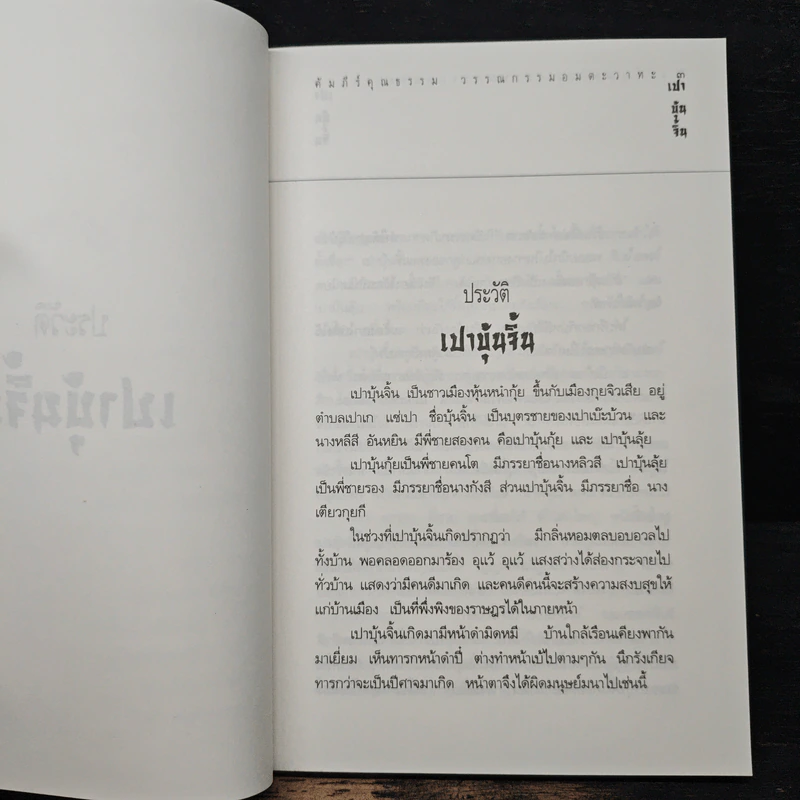 คัมภีร์คุณธรรม วรรณกรรมอมตะวาทะ ๓
เปา
บุ้น
จิ้น
ประวัติ
เปาบุ้นจิ้น
เปาบุ้นจิ้น เป็นชาวเมืองหุ้นหนำกุ้ย ขึ้นกับเมืองกุยจิวเสีย อยู่
ตำบลเปาเก แซ่เปา ชื่อบุ้นจิ้น เป็นบุตรชายของเปาเบ๊ะบ้วน และ
นางหลีสี อันหยิน มีพี่ชายสองคน คือเปาบุ้นกุ้ย และ เปาบุ้นลุ้ย
เปาบุ้นกุ้ยเป็นพี่ชายคนโต มีภรรยาชื่อนางหลิวสี เปาบุ้นลุ้ย
เป็นพี่ชายรอง มีภรรยาชื่อนางกังสี ส่วนเปาบุ้นจิ้น มีภรรยาชื่อ นาง
เตียวกุยกี
ในช่วงที่เปาบุ้นจิ้นเกิดปรากฏว่า มีกลิ่นหอมตลบอบอวลไป
ทั้งบ้าน พอคลอดออกมาร้อง อุแว้ อุแว้ แสงสว่างได้ส่องกระจายไป
ทั่วบ้าน แสดงว่ามีคนดีมาเกิด และคนดีคนนี้จะสร้างความสงบสุขให้
แก่บ้านเมือง เป็นที่พึ่งพิงของราษฎรได้ในภายหน้า
เปาบุ้นจิ้นเกิดมามีหน้าดำมิดหมี บ้านใกล้เรือนเคียงพากัน
มาเยี่ยม เห็นทารกหน้าดำปี๋ ต่างทำหน้าเบ้ไปตามๆกัน นึกรังเกียจ
ทารกว่าจะเป็นปีศาจมาเกิด หน้าตาจึงได้ผิดมนุษย์มนาไปเช่นนี้